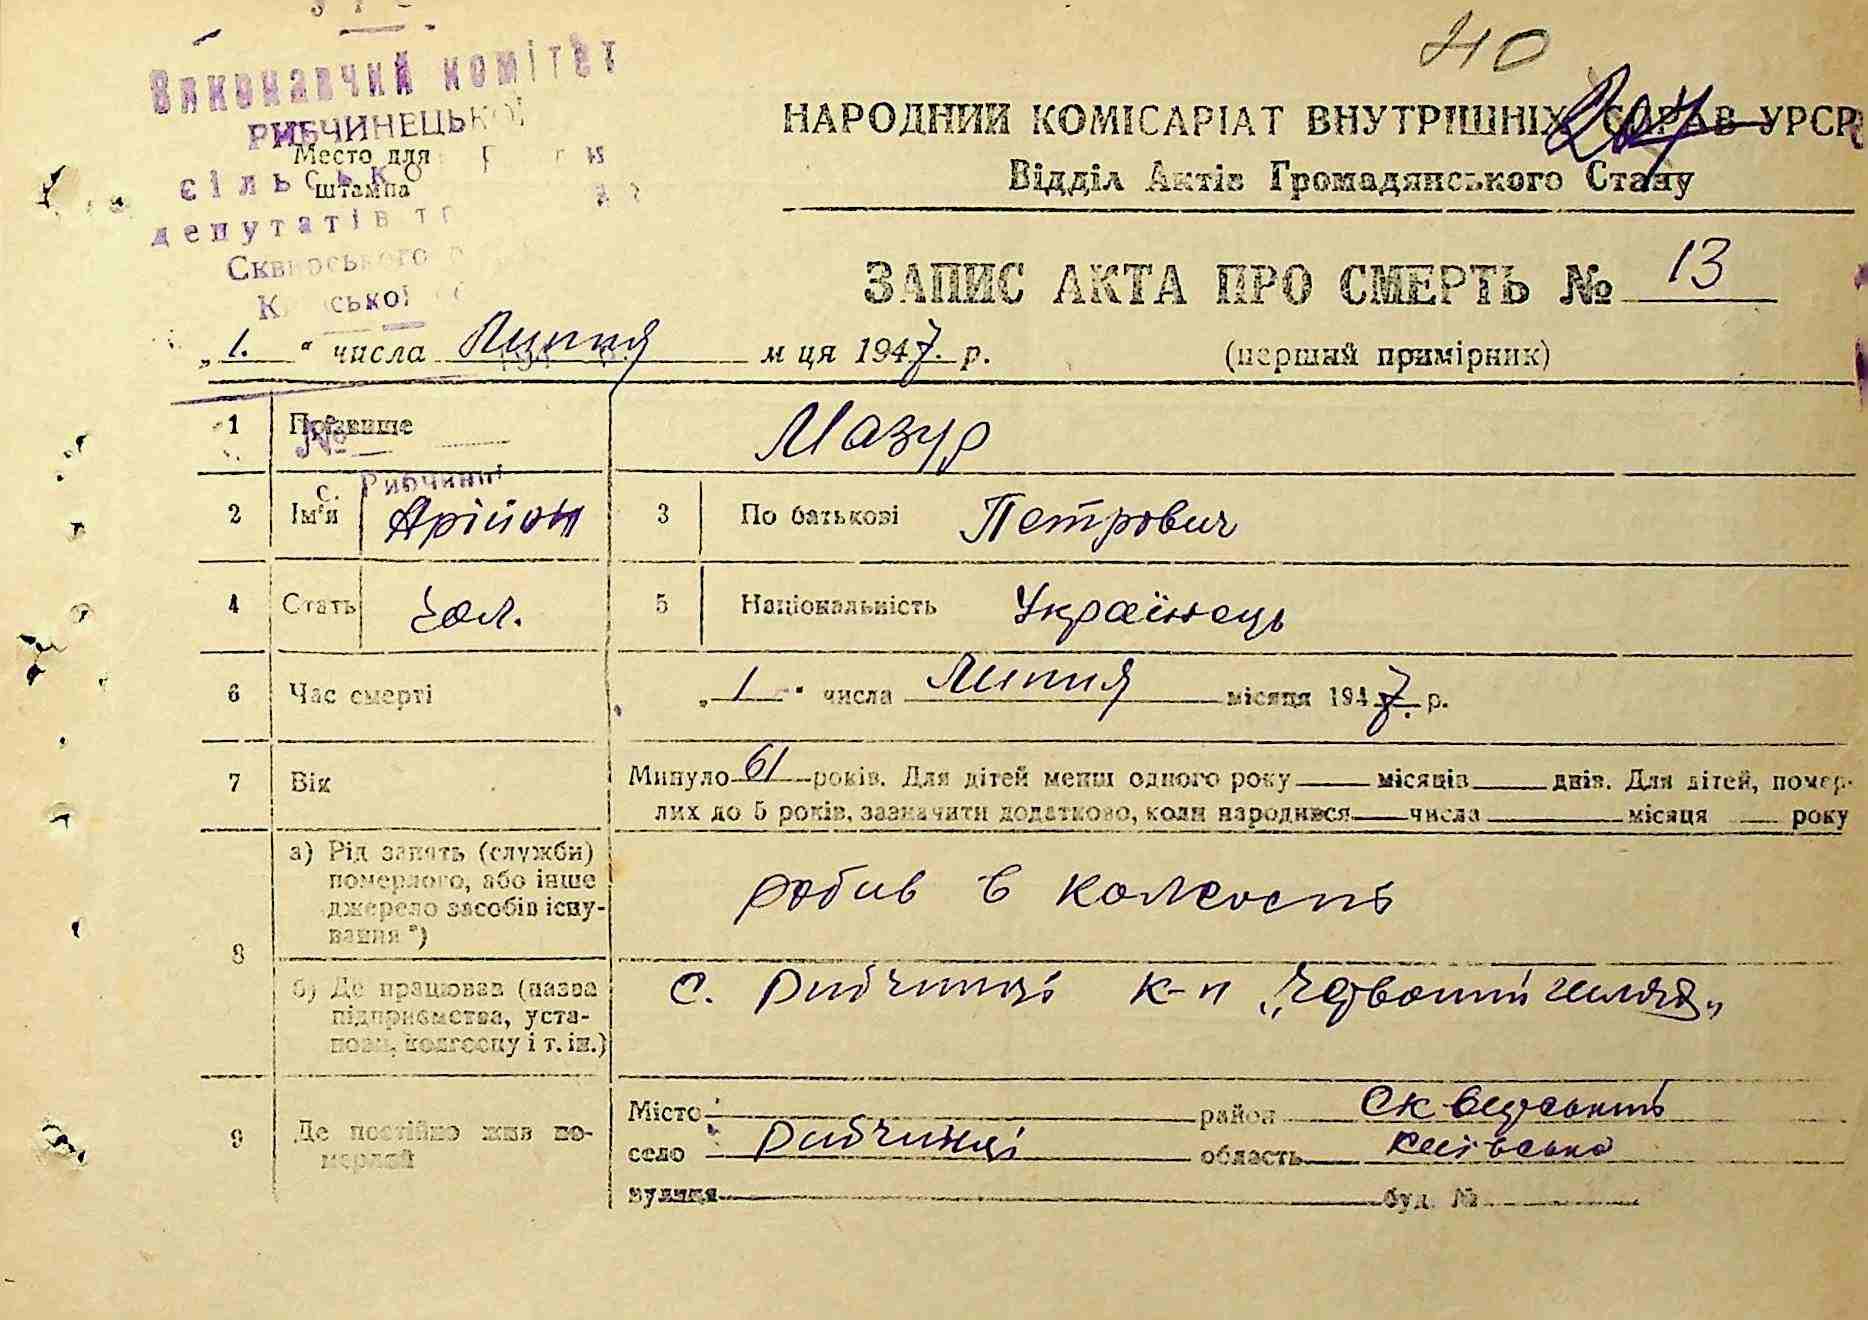 40
Виконавчий комітет
РИБЧИНЕЦЬКОЇ
Место для
штампа
сільсько
депутатів
Сквирського
Київської
НАРОДНИЙ КОМІСАРІАТ ВНУТРІШНІХ СПРАВ УРСР
Відділ Актів Громадянського Стану
ЗАПИС АКТА ПРО СМЕРТЬ № 13
„1." числа Липня м ця 1947. р.
(перший примірник)
1 Прізвище Мазур
№
с. Рибчинці
2 Ім'я Арійон 3 По батькові Петрович
4 Стать Чол. 5 Національність Українець
6 Час смерті „1" числа Липня місяця 1947. р.
7 Вік Минуло 61 років. Для дітей менш одного року місяців днів. Для дітей, помер-
лих до 5 років, зазначити додатково, коли народився числа місяця року
8 а) Рід занять (служби)
померлого, або інше
джерело засобів існу-
вання *)
робив в колгоспі
б) Де працював (назва
підприємства, уста-
нови, колгоспу і т. ін.)
с. Рибчинці к-п „Червоний шлях„
9 Де постійно жив по-
мерлий
Місто район Сквирський
село Рибчинці область Київська
вулиця буд. №